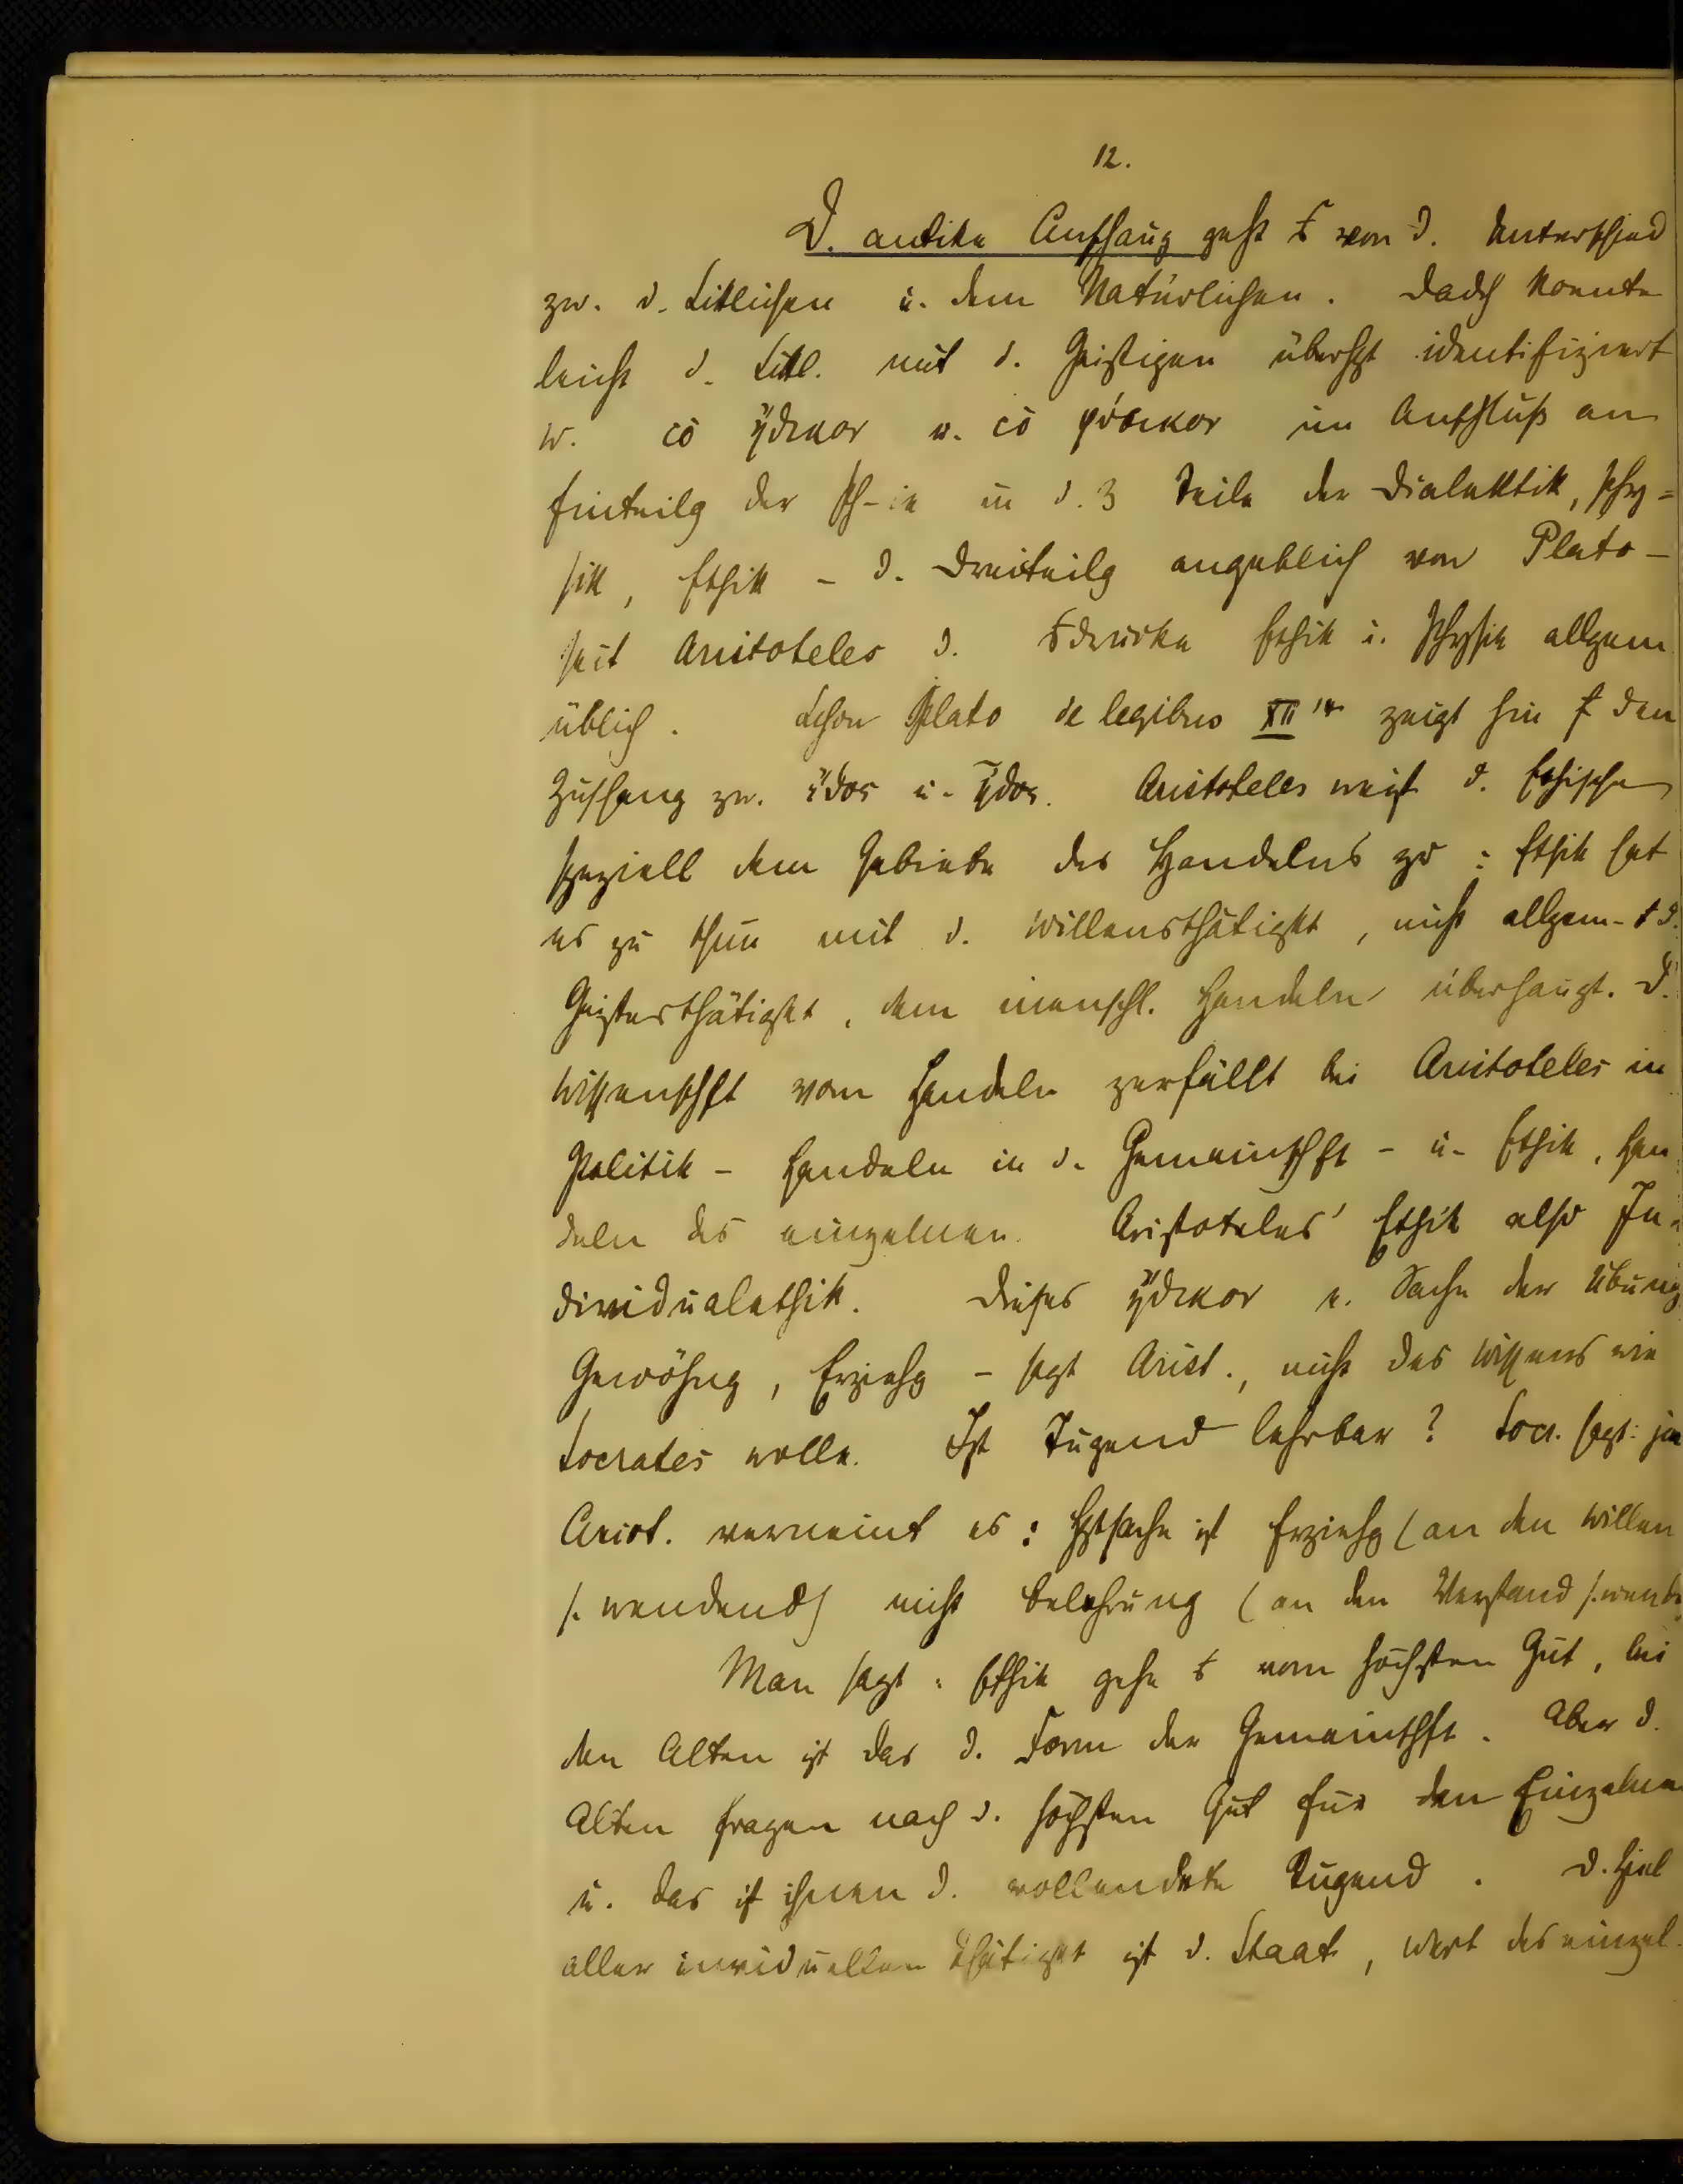 12.
D. antike Auffssung geht ꝭ von d. Unterschied
zw. d. Sittlichen u. dem Natürlichen. Dadch konnte
leicht d. Sittl. mit d. Geistigen überhpt identifiziert
w. τὸ ἠθικον u. τὸ φύσικον im Anschluß an
Einteilg der Ph-ie in d. 3 Teile der Dialektik, Phy=
sik, Ethik – d. Dreiteilg angeblich von Plato –
seit Aristoteles d. ꝭdrücke Ethik u. Physik allgem
üblich. Schon Plato de legibus XII 14 zeigt hin f den
Zushang zw. ἔθος u. ἦθος. Aristoteles weist d. Ethische
speziell dem Gebiete des Handelns zu: Ethik hat
es zu thun mit d. Willensthätigkt, nicht allgem- t d.
Geistesthätigkt, dem menschl. Handeln überhaupt. D.
Wissenschft vom Handeln zerfällt bei Aristoteles in
Politik – Handeln in d. Gemeinschft – u. Ethik, Han
deln des einzelnen. Aristoteles' Ethik also In-
dividualethik. Dieses ἠθικον e. Sache der Übung
Gewöhng, Erziehg – sagt Arist., nicht des Wissens wie
Socrates wolle. Ist Tugend lehrbar? Socr. sagt: ja
Arist. verneint es: Hptsache ist Erziehg (an den Willen
s. wendend) nicht Belehrung (an den Verstand s. wende
Man sagt: Ethik gehe ꝭ vom höchsten Gut, bei
den Alten ist das d. Form der Gemeinschft. Aber d.
Alten fragen nach d. höchsten Gut für den Einzelne
u. das ist ihnen d. vollendete Tugend. D. Ziel
aller inviduellen Thätigkt ist d. Staat, Wert des einzel-